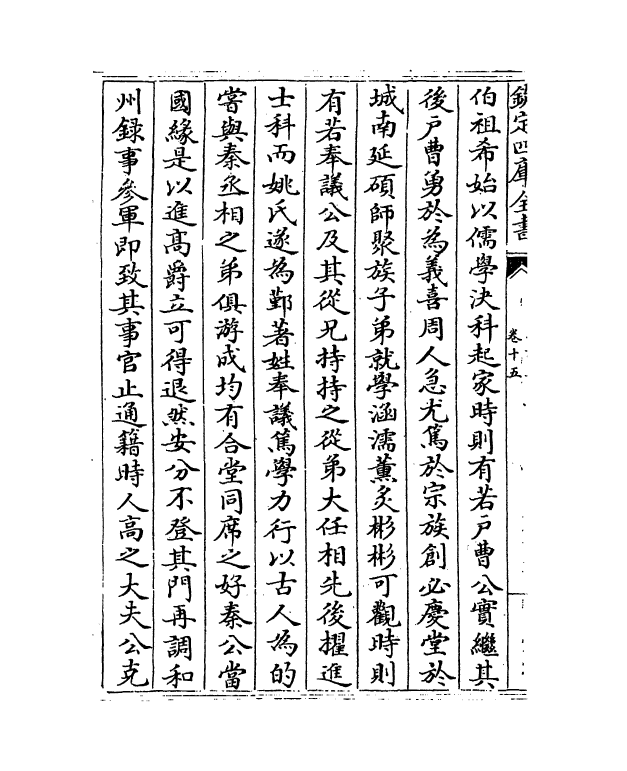 欽定四庫全書
卷十五
伯祖希始以儒學決科起家時則有若戸曹公實繼其
後戸曹勇於為義喜周人急尤篤於宗族創必慶堂於
城南延碩師聚族子弟就學涵濡薫炙彬彬可觀時則
有若奉議公及其從兄持持之從弟大任相先後擢進
士科而姚氏遂為鄞著姓奉議篤學力行以古人為的
嘗與秦丞相之弟俱游成均有合堂同席之好秦公當
國緣是以進髙爵立可得退然安分不登其門再調和
州録事參軍即致其事官止通籍時人高之大夫公克